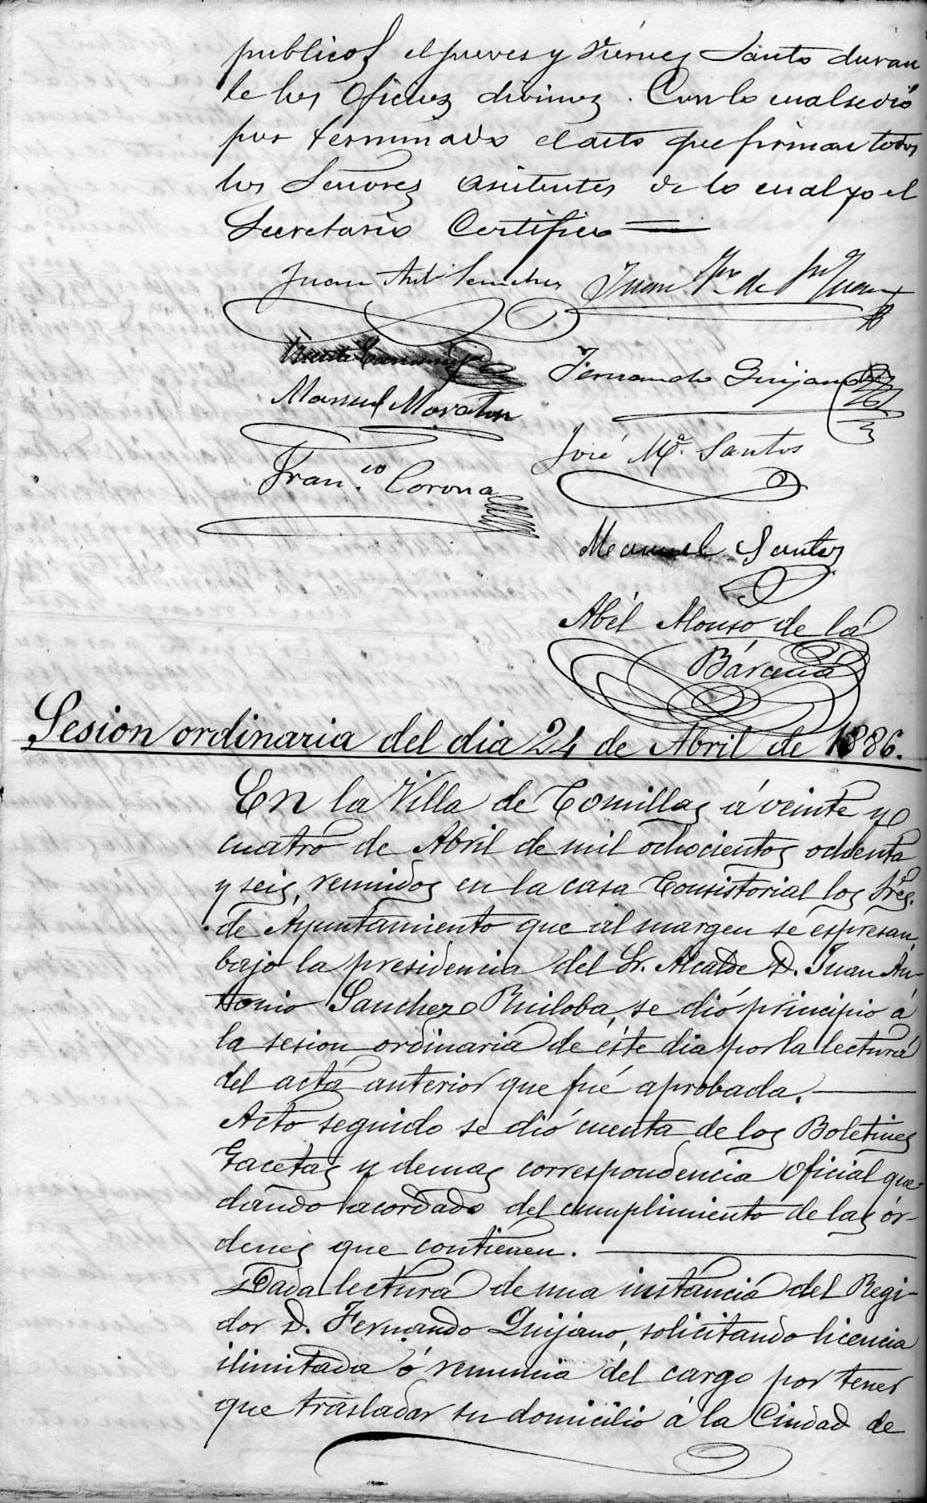 publicos el jueves y Viernes Santo duran
te los Oficios divinos. Con lo cual se dió
por terminado el acto que firman todos
los Señores asistentes de lo cual yo el
Secretario Certifico
Juan Ant Sanchez
Juan
Fernando Quijano
Manuel Moraton
José Mª. Santos
Fran.co Corona
Manuel Santos
Abél Alonso de la
Bárcena
Sesion ordinaria del dia 24 de Abril de 1886.
En la Villa de Comillas á veinte y
cuatro de Abril de mil ochocientos ochenta
y seis, reunidos en la casa Consistorial los Sres.
de Ayuntamiento que al margen se espresan,
bajo la presidencia del Sr. Alcalde D. Juan An-
tonio Sanchez Ruiloba, se dió principio á
la sesion ordinaria de éste dia por la lectura
del acta anterior que fué aprobada.
Acto seguido se dió cuenta de los Boletines
Gacetas y demas correspondencia Oficial que-
dando acordado del cumplimiento de las ór-
denes que contienen.
Dada lectura de una instancia del Regi-
dor D. Fernando Quijano, solicitando licencia
ilimitada ó renuncia del cargo por tener
que trasladar su domicilio á la Ciudad de